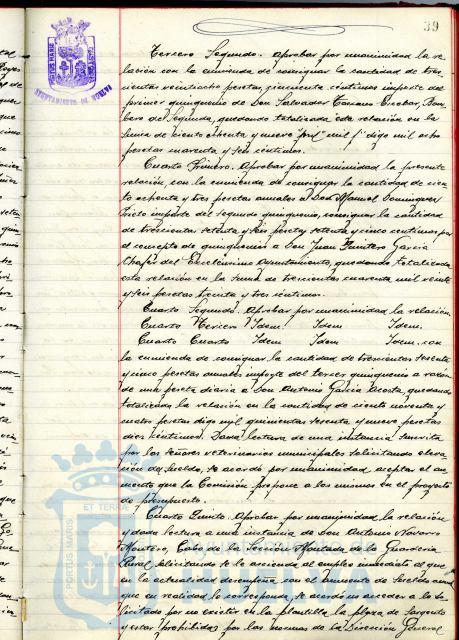 39
AYUNTAMIENTO DE HUELVA
Tercero Segundo. Aprobar por unanimidad la re-
lación con la enmienda de consignar la cantidad de tres-
cientas veintiocho pesetas, cincuenta céntimos importe del
primer quinquenio de Don Salvador Escobar, Bom-
bero del Segunda, quedando totalizada esta relación en la
suma de ciento ochenta y nueve mil digo mil ocho
pesetas cuarenta y seis céntimos.
Cuarto Primero. Aprobar por unanimidad la presente
relación, con la enmienda de consignar la cantidad de cien-
to ochenta y tres pesetas anuales a Don Manuel Dominguez
Prieto importe del segundo quinquenio, consignar la cantidad
de trescientas setenta y seis pesetas setenta y cinco céntimos por
el concepto de quinquenio a Don Juan García
Chofer del Excelentísimo Ayuntamiento, quedando totalizada
esta relación en la suma de trescientas cuarenta mil veinte
y seis pesetas treinta y tres céntimos.
Cuarto Segundo. Aprobar por unanimidad la relación.
Cuarto Tercero Idem Idem Idem.
Cuarto Cuarto Idem Idem Idem. con
la enmienda de consignar la cantidad de trescientas sesenta
y cinco pesetas anuales importe del tercer quinquenio a razón
de una peseta diaria a Don Antonio García Acosta, quedando
totalizada la relación en la cantidad de ciento noventa y
cuatro pesetas digo mil quinientas sesenta y nueve pesetas
diez céntimos. Dada lectura de una instancia suscrita
por los señores veterinarios municipales solicitando eleva-
ción de sueldo, se acordó por unanimidad aceptar el au-
mento que la Comisión propone a los mismos en el proyecto
de presupuesto.
Cuarto Quinto. Aprobar por unanimidad la relación
y dada lectura a una instancia de Don Antonio Navarro
Montero, Cabo de la Sección Montada de la Guardería
Rural solicitando se le ascienda al empleo inmediato al que
en la actualidad desempeña con el aumento de sueldo anual
que en realidad le corresponda, se acordó no acceder a lo so-
licitado por no existir en la plantilla la plaza de Sargento
y estar prohibidas por las normas de la Dirección General
PORTUS MARIS ET TERRAE
HUELVA